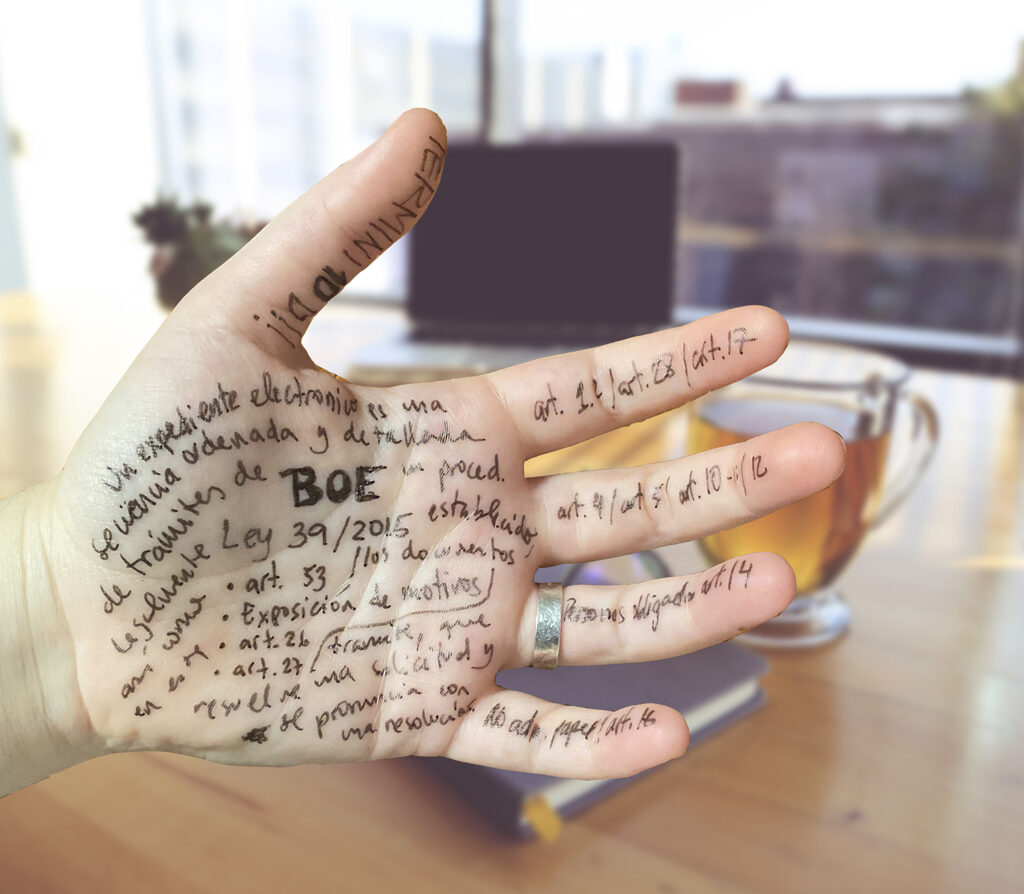 TERMINI
un expediente electronico es una
secuencia ordenada y detallada
de trámites de BOE un proced.
Legalmente Ley 39/2015 establecido,
así como • art. 53 /los documentos
• Exposición de motivos/
en es • art. 26 /tramite, que
• art. 27 resuelve una solicitud y
se pronuncia con
una resolución
art. 1.2/art. 28/art. 17
art. 4/art 5/art. 10-11/12
Personas obligadas art. 14
No adm. papel/art. 16